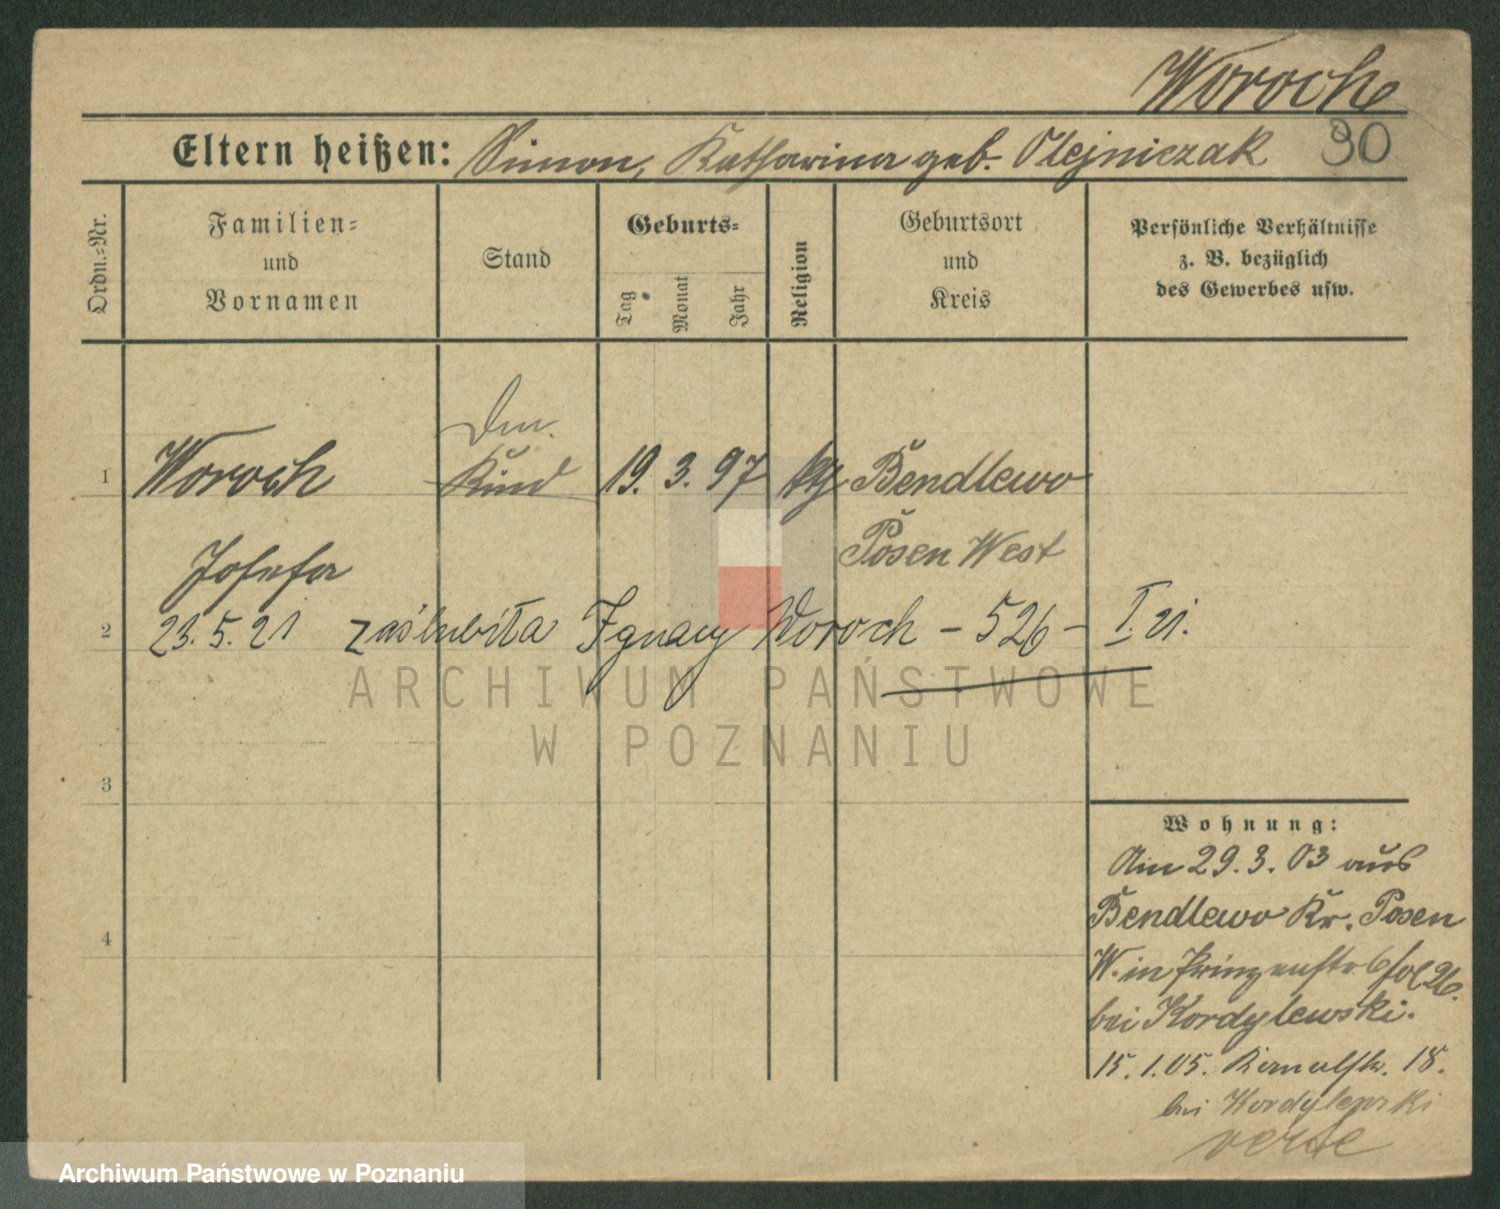 Woroch
Eltern heißen: Simon, Katharina geb. Olejniczak 90
Ordn.=Nr.
Familien=
und
Vornamen
Stand
Geburts=
Tag
Monat
Jahr
Religion
Geburtsort
und
Kreis
Persönliche Verhältnisse
z. B. bezüglich
des Gewerbes usw.
1 Woroch Kind 19. 3. 97 kth Bendlewo
Posen West
Josefa
2 23. 5. 21 zaślubiła Ignacy Woroch - 526 -
ARCHIWUM PAŃSTWOWE
W POZNANIU
3
4
Wohnung:
Am 29. 3. 03 aus
Bendlewo Kr. Posen
W. in Prinzenstr 6 fol 26.
bei Kordylewski.
15. 1. 05. Kanalstr. 18.
bei Kordylewski
verte
Archiwum Państwowe w Poznaniu